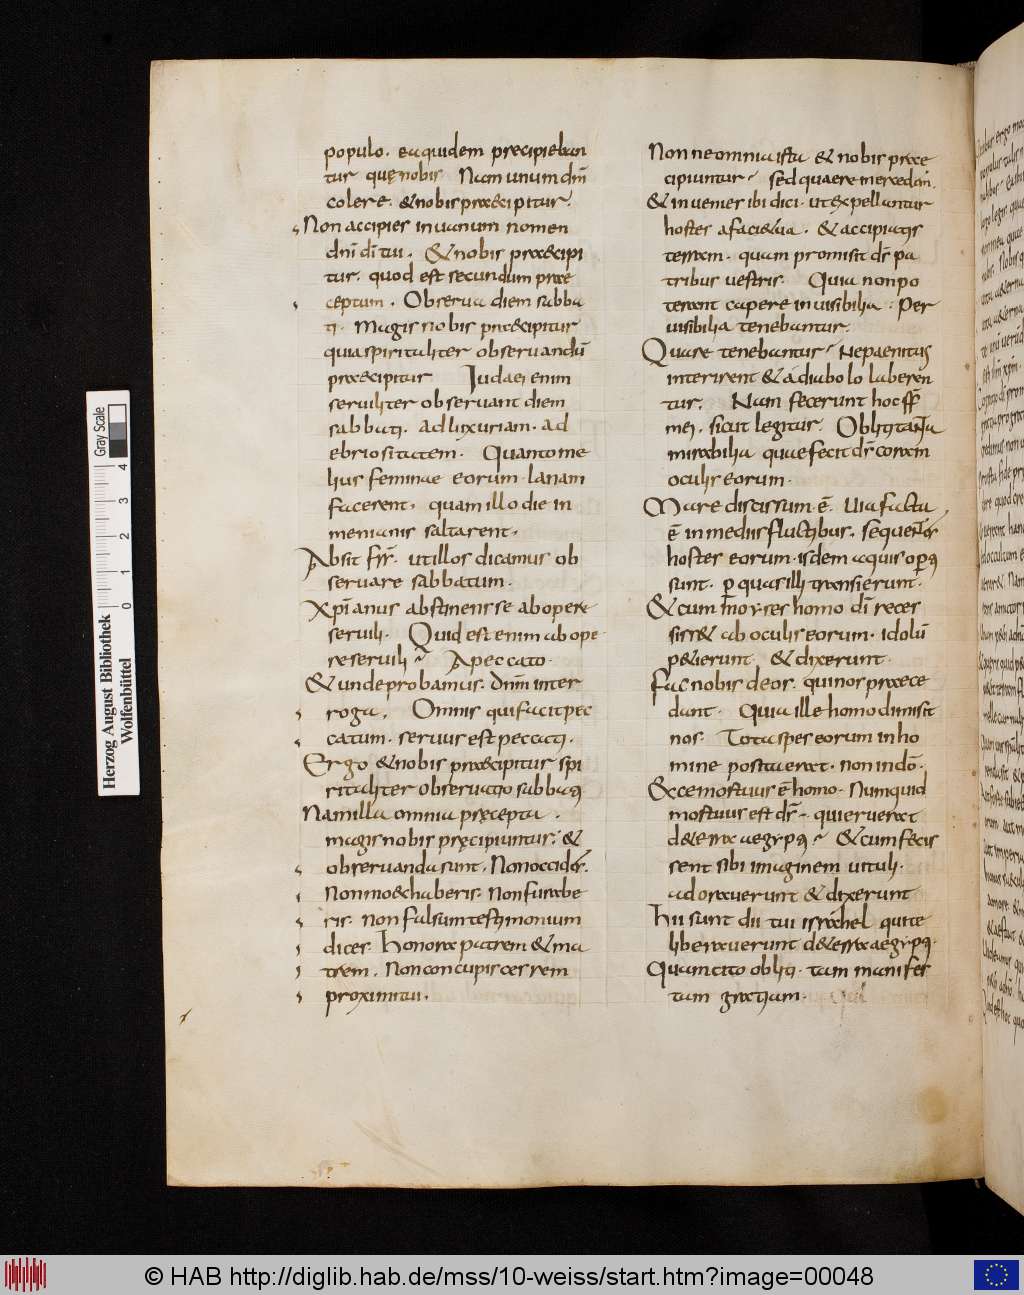 populo. ea quidem precipieban
tur quę nobis Nam unum dnm̄
colere. & nobis praecipitur.
Non accipies in uanum nomen
dnī dī tui. & nobis praecipi
tur. quod est secundum prae
ceptum. Obserua diem sabba
ti. Magis nobis praecipitur
quia spiritaliter obseruandū
praecipitur Iudaei enim
seruiliter obseruant diem
sabbati. ad luxuriam. ad
ebriositatem. Quanto me
lius feminae eorum lanam
facerent. quam illo die in
menianis saltarent.
Absit fr̄r. ut illos dicamus ob
seruare sabbatum.
Xp̄ianus abstinens se ab opere
seruili. Quid est enim ab ope
re seruili? A peccato.
& unde probamus. dnm̄ inter
roga. Omnis qui facit pec
catum. seruus est peccati.
Ergo & nobis praecipitur spi
ritaliter obseruatio sabbati
Nam illa omnia pręcepta.
magis nobis pręcipiuntur. &
obseruanda sunt. Non occides.
Non moechaberis. Non furabe
ris. non falsum testimonium
dices. Honora patrem & ma
trem. Non concupisces rem
proximi tui.
Non ne omnia ista & nobis prae
cipiuntur? sed quaere mercedem.
& inuenies ibi dici. ut expellantur
hostes a facie tua. & accipiatis
terram. quam promisit ds̄ pa
tribus uestris. Quia non po
terant capere inuisibilia. Per
uisibilia tenebantur.
Quare tenebantur? Ne paenitus
interirent & a diabolo laberen
tur. Nam fecerunt hoc fr̄s
mei. sicut legitur. Obliti tanta
mirabilia quae fecit ds̄ coram
oculis eorum.
Mare discissum ē. Uia facta
ē in mediis fluctibus. sequentes
hostes eorum. isdem aquis operti
sunt. per quas illi transierunt.
& cum moyses homo dī reces
siss& ab oculis eorum. idolū
p&ierunt. & dixerunt.
Fac nobis deos. qui nos praece
dant. Quia ille homo dimisit
nos. Tota spes eorum in ho
mine posita erat. non in dō.
Ecce mortuus ē homo. Numquid
mortuus est ds̄. qui eruerat
d& erra aegypti? & cum fecis
sent sibi imaginem uituli.
adorauerunt & dixerunt
Hii sunt dii tui israhel qui te
liberauerunt d& erra aegypti.
Quam cito obliti. tam manifes
tam gratiam.
Herzog August Bibliothek
Wolfenbüttel
0 1 2 3 4
Gray Scale
© HAB http://diglib.hab.de/mss/10-weiss/start.htm?image=00048